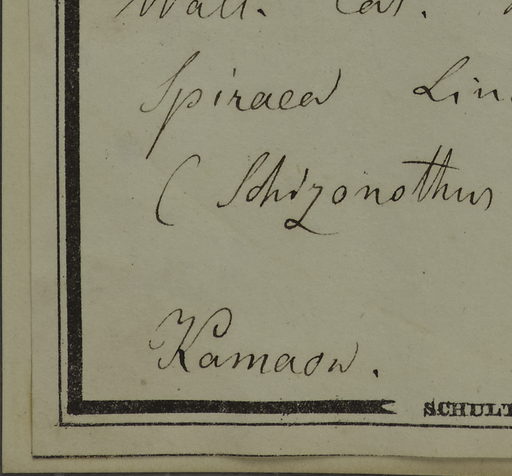 Wall. Cat.
Spiraea Lin
( Schizonothus
Kamaon.
SCHULT